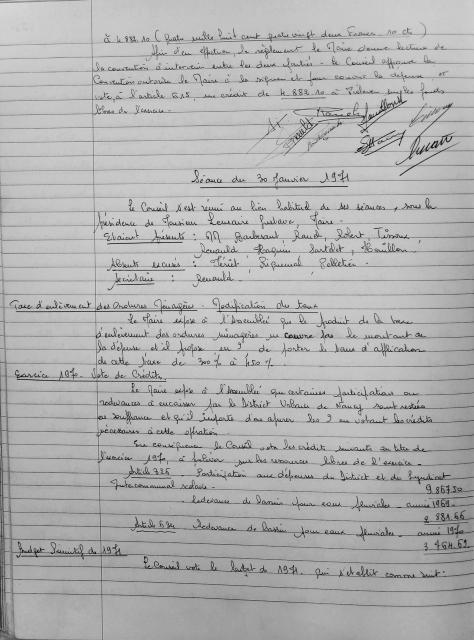 à 4.882.10 (Quatre mille huit cent quatre vingt deux Francs - 10 cts)
Afin d'en effectuer le règlement le Maire donne lecture de
la convention à intervenir entre les deux parties - le Conseil approuve la
Convention autorise le Maire à la signer et pour couvrir la dépense, et
vote, à l'article 615, un crédit de 4.882.10 à prélever sur les fonds
libres de l'exercice.
Séance du 30 Janvier 1971
Le Conseil s'est réuni au lieu habituel de ses séances, sous la
présidence de Monsieur Lemaire Gustave, Maire -
Etaient présents : MM. Robert,
Renauld
Absents excusés : Pelletier -
Secrétaire : Renauld
Taxe d'enlèvement des Ordures Ménagères - Modification du taux
Le Maire expose à l'Assemblée que le produit de la taxe
d'enlèvement des ordures ménagères ne couvre pas le montant de
la dépense et il propose de porter le taux d'application
de cette taxe de 300 % à 450 %
Exercice 1970 - Vote de Crédits
Le Maire expose à l'assemblée que certaines participations ou
redevances à encaisser par le District Urbain de Nancy sont restées
en souffrance et qu'il importe d'en apurer les en votant les crédits
nécessaires à cette opération
En conséquence le Conseil vote les crédits suivants au titre de
l'exercice 1970, à prélever sur les ressources libres de l'exercice -
Article Participation aux dépenses du District et du Syndicat
Intercommunal scolaire - 9 867.50
- Redevance de bassin pour eaux pluviales - année 1969 -
2 881.66
Article Redevance de bassin pour eaux pluviales - année 1970
3 464.62
Budget Primitif de 1971
Le Conseil vote le budget de 1971 qui s'établit comme suit :